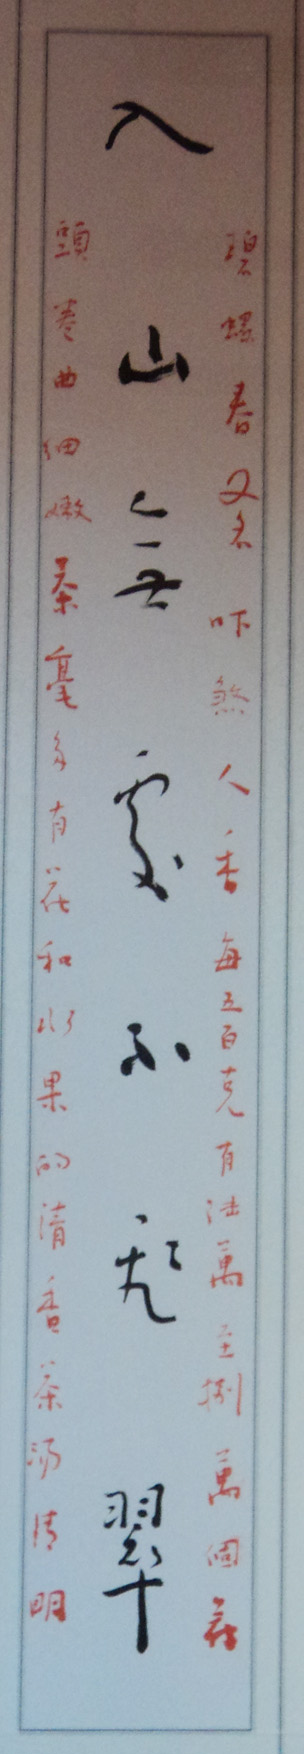 碧螺春又名吓煞人香每五百克有陆萬至捌萬個芽
入山無處不飛翠
頭卷曲细嫩茶毫多有花和水果的清香茶汤清明